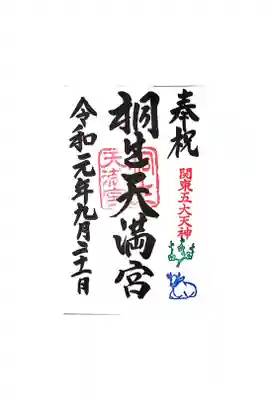 奉祝
関東五大天神
桐生天満宮
令和元年九月二十一日